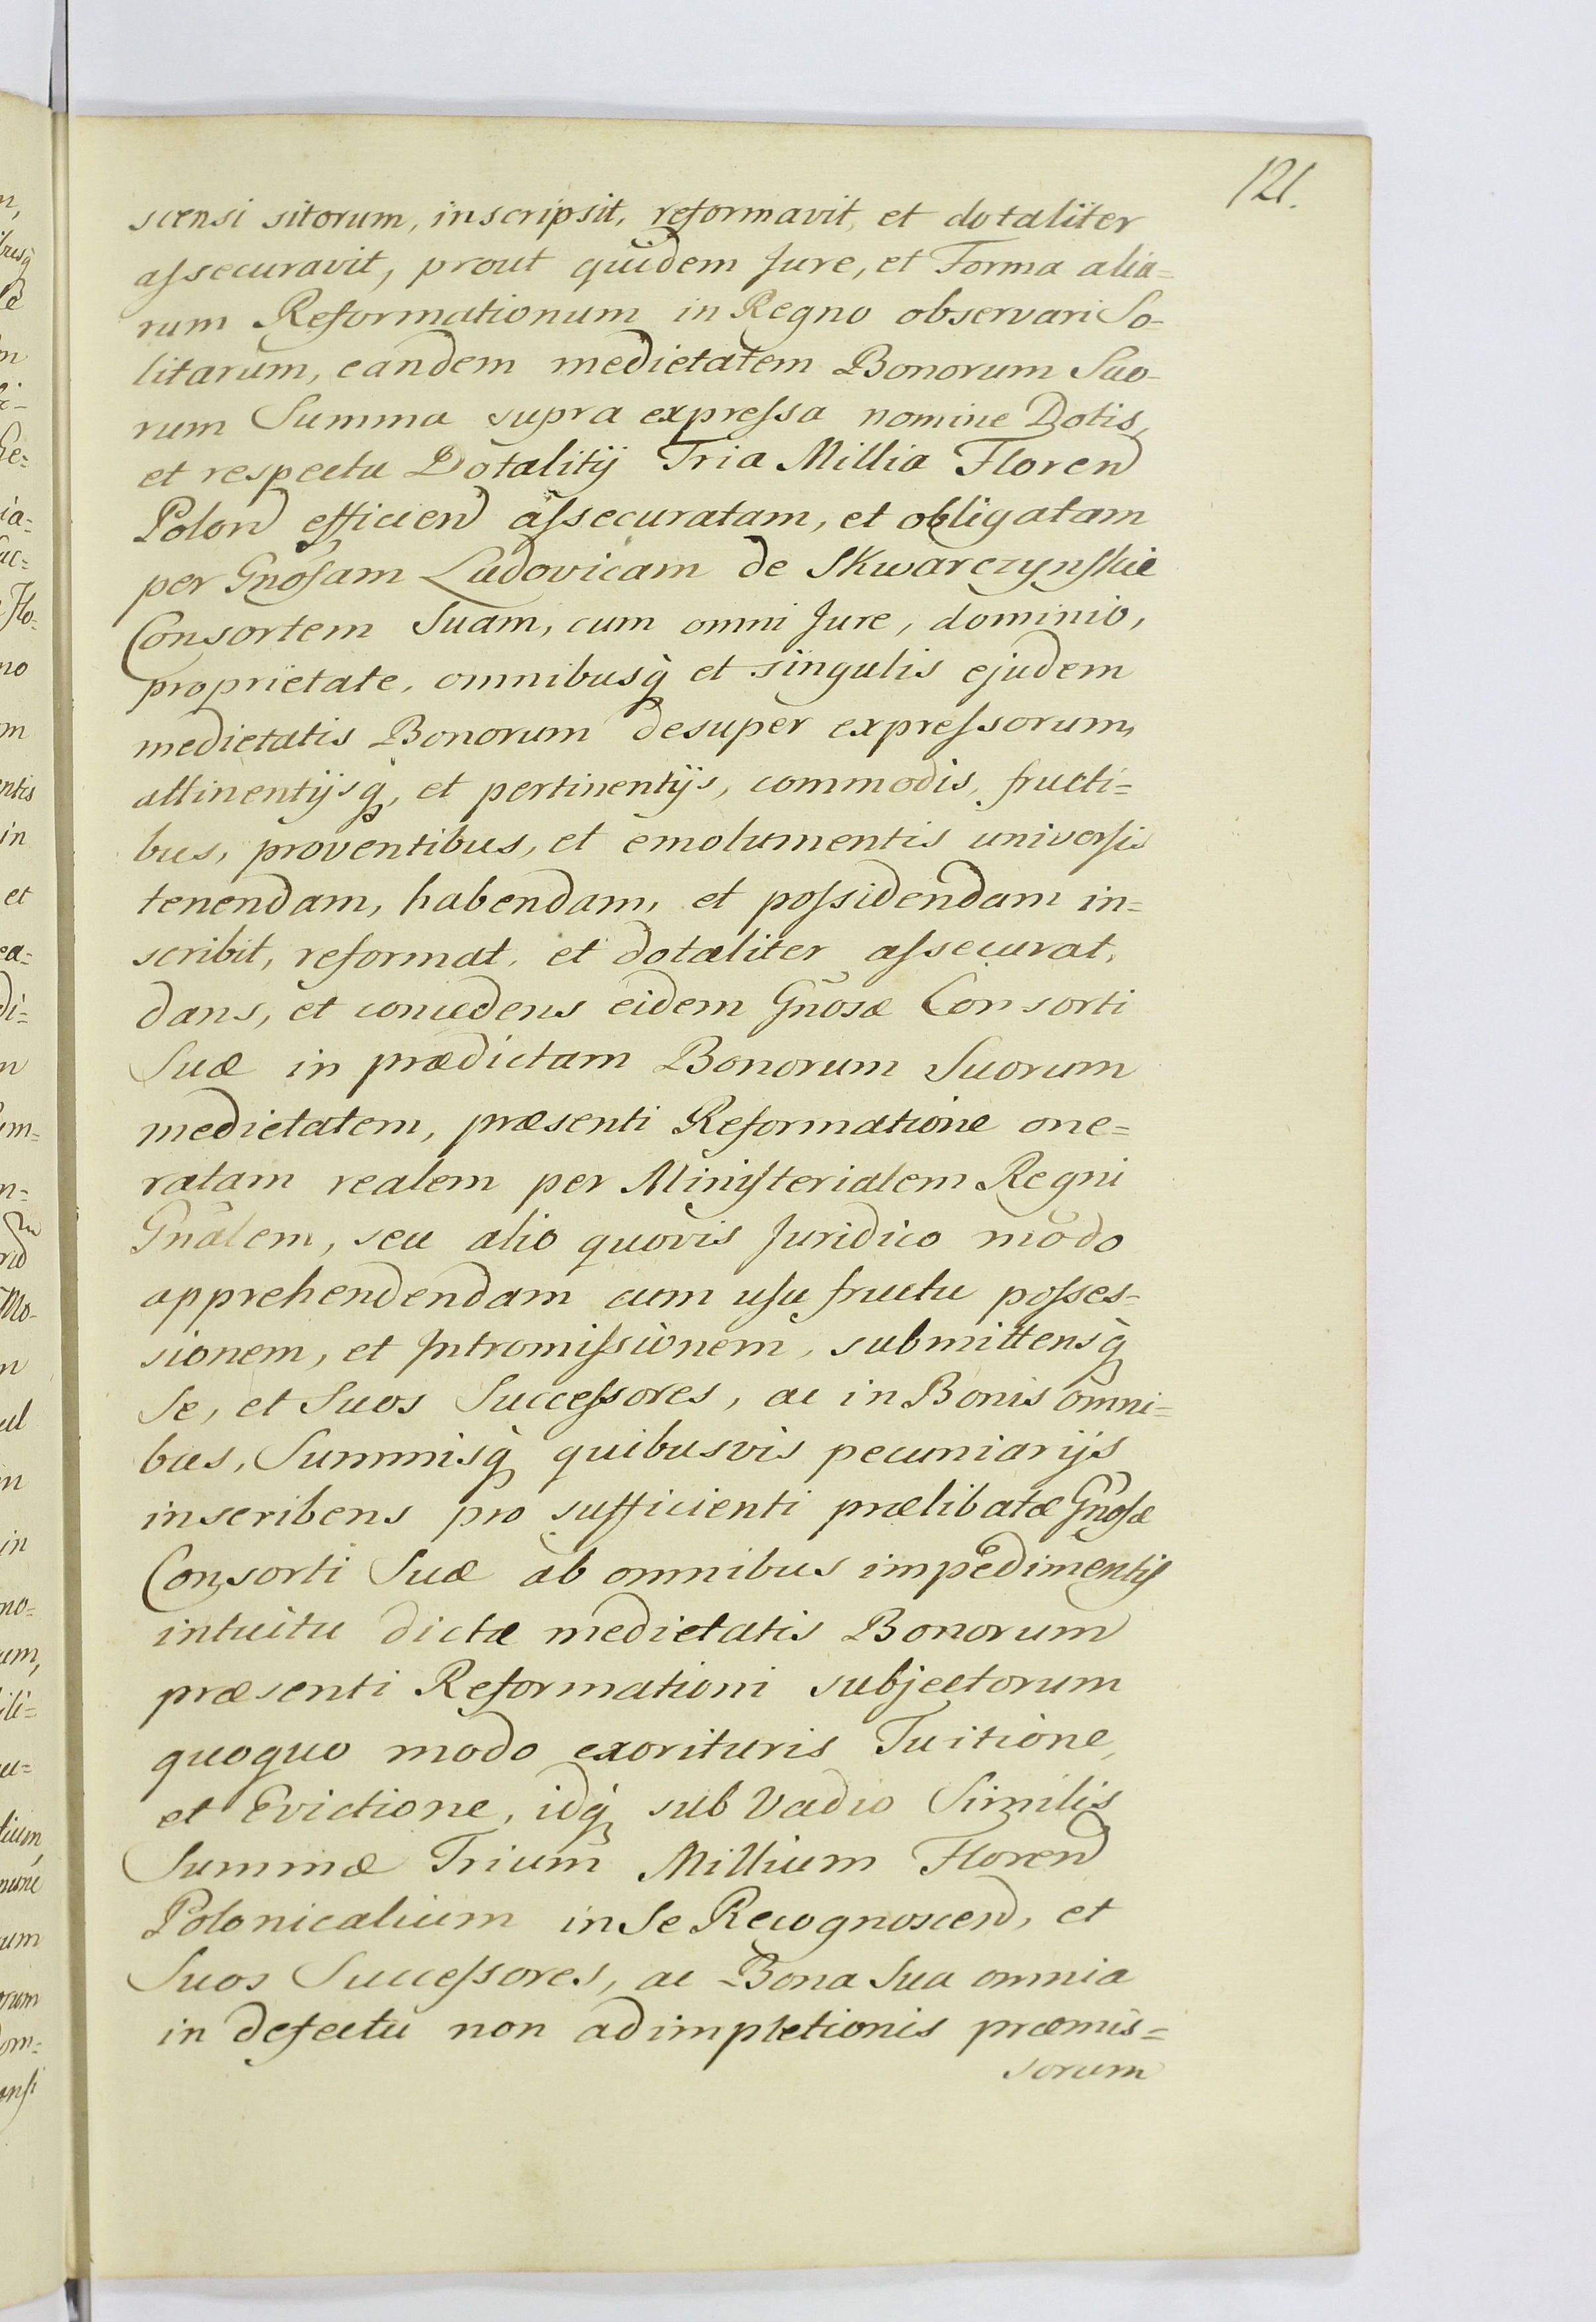 121.
scensi sitorum, inscripsit, reformavit, et dotaliter
assecuravit, prout quidem Jure, et Forma alia=
rum Reformationum in Regno observari So-
litarum, eandem medietatem Bonorum Suo-
rum Summa supra expressa nomine Dotis,
et respectu Dotalitij Tria Millia Floren
Polon efficien assecuratam, et obligatam
per Gnosam Ludovicam de Skwarczynskie
Consortem Suam, cum omni Jure, dominio,
proprietate, omnibusq̀ et singulis ejudem
medietatis Bonorum desuper expressorum,
attinentijsq̀, et pertinentijs, commodis, fructi=
bus, proventibus, et emolumentis universis
tenendam, habendam, et possidendam in=
scribit, reformat, et dotaliter assecurat,
dans, et concedens eidem Gnosæ Consorti
Suæ in prædictam Bonorum Suorum
medietatem, præsenti Reformatione one=
ratam realem per Ministerialem Regni
Gnalem, seu alio quovis Juridico modo
apprehendendam cum usu fructu posses=
sionem, et Intromissionem, submittensq̀
Se, et Suos Successores, ac in Bonis omni=
bus, Summisq̀ quibusvis pecuniarijs
inscribens pro sufficienti prælibatæ Gnosæ
Consorti Suæ ab omnibus impedimentis
intuitu dictæ medietatis Bonorum
præsenti Reformationi subjectorum
quoquo modo exorituris Tuitione,
et Evictione, idq̀ sub Vadio Similis
Summæ Trium Millium Floren
Polonicalium in Se Recognoscen, et
Suos Successores, ac Bona Sua omnia
in defectu non adimpletionis præmis=
sorum